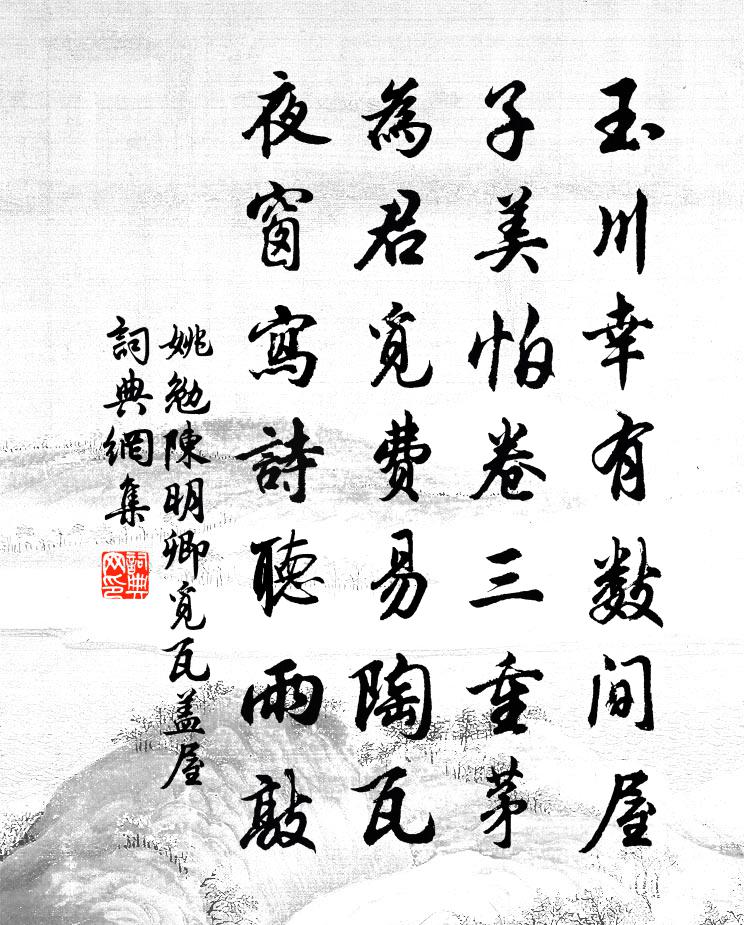 玉川幸有数間屋
子美怕卷三重茅
為君覓費易陶瓦
夜窗寫詩聽雨敲
姚勉陳明卿覓瓦蓋屋
詞典網集
詞典网印